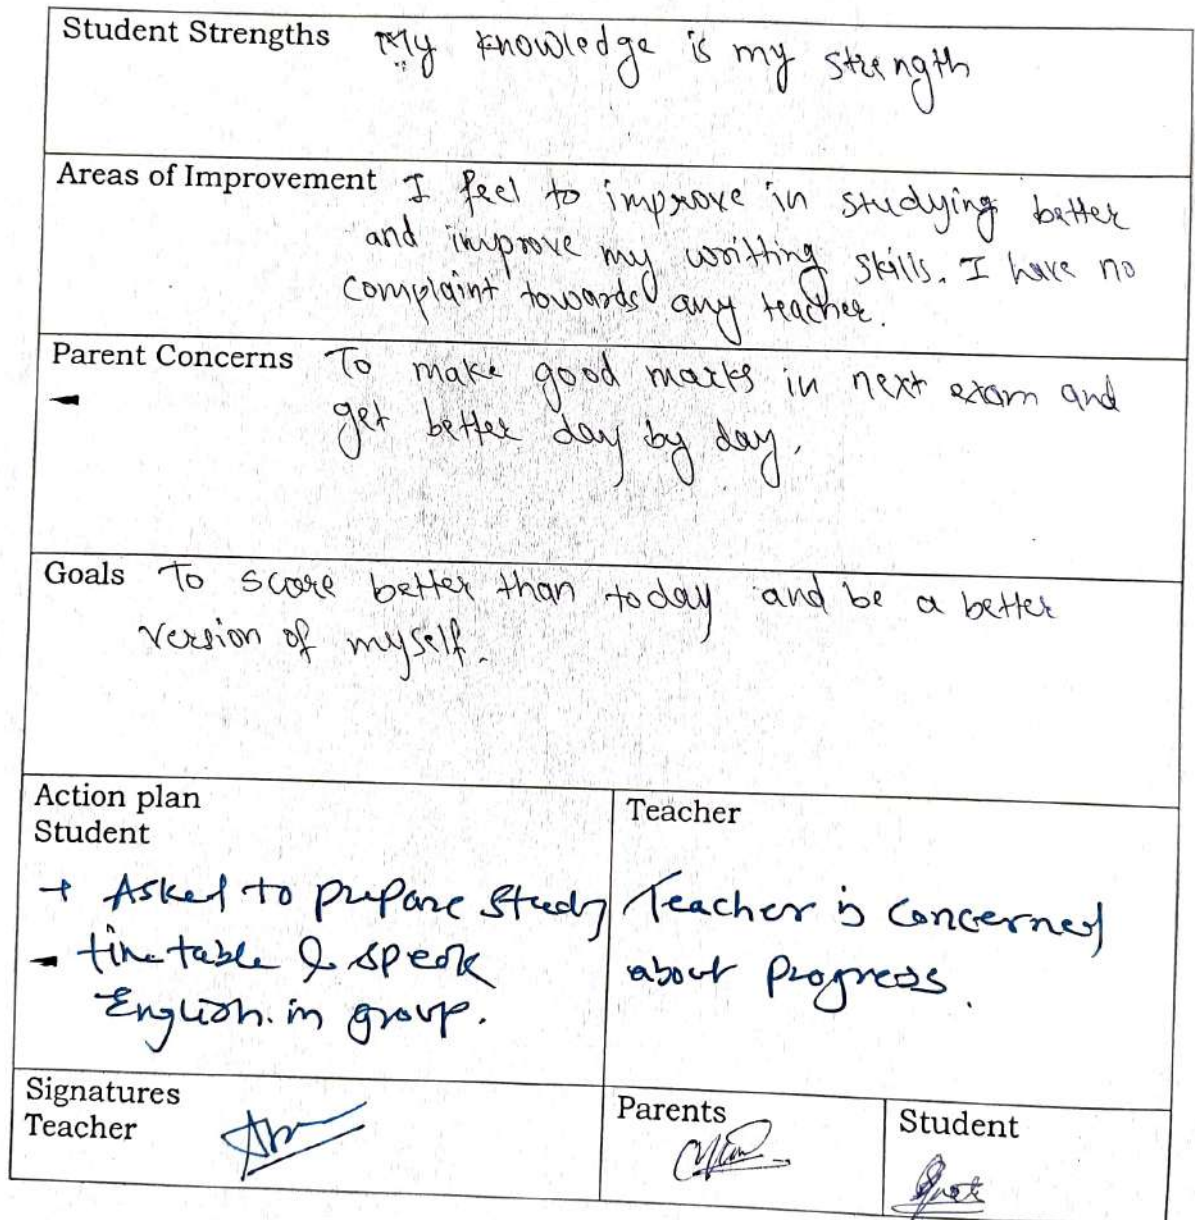 Student Strengths My knowledge is my strength
Areas of Improvement I feel to improve in studying better
and improve my writting skills. I have no
complaint towards any teacher.
Parent Concerns To make good marks in next exam and
get better day by day.
Goals To score better than today and be a better
version of myself.
Action plan
Student
→ Asked to prepare study
- time table & speak
English in group.
Teacher
Teacher is concerned
about progress.
Signatures
Teacher
Parents
Student